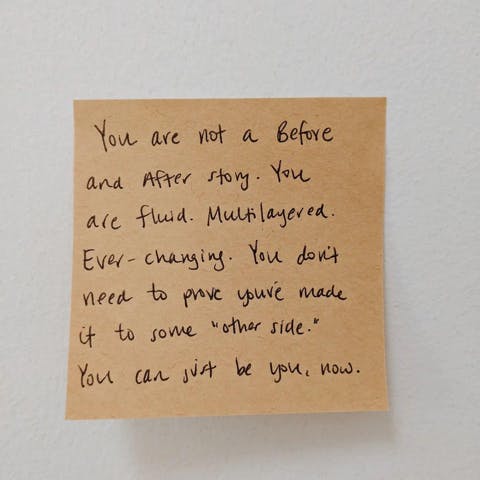 You are not a Before
and After story. You
are fluid. Multilayered.
Ever-changing. You don't
need to prove you've made
it to some "other side."
You can just be you, now.